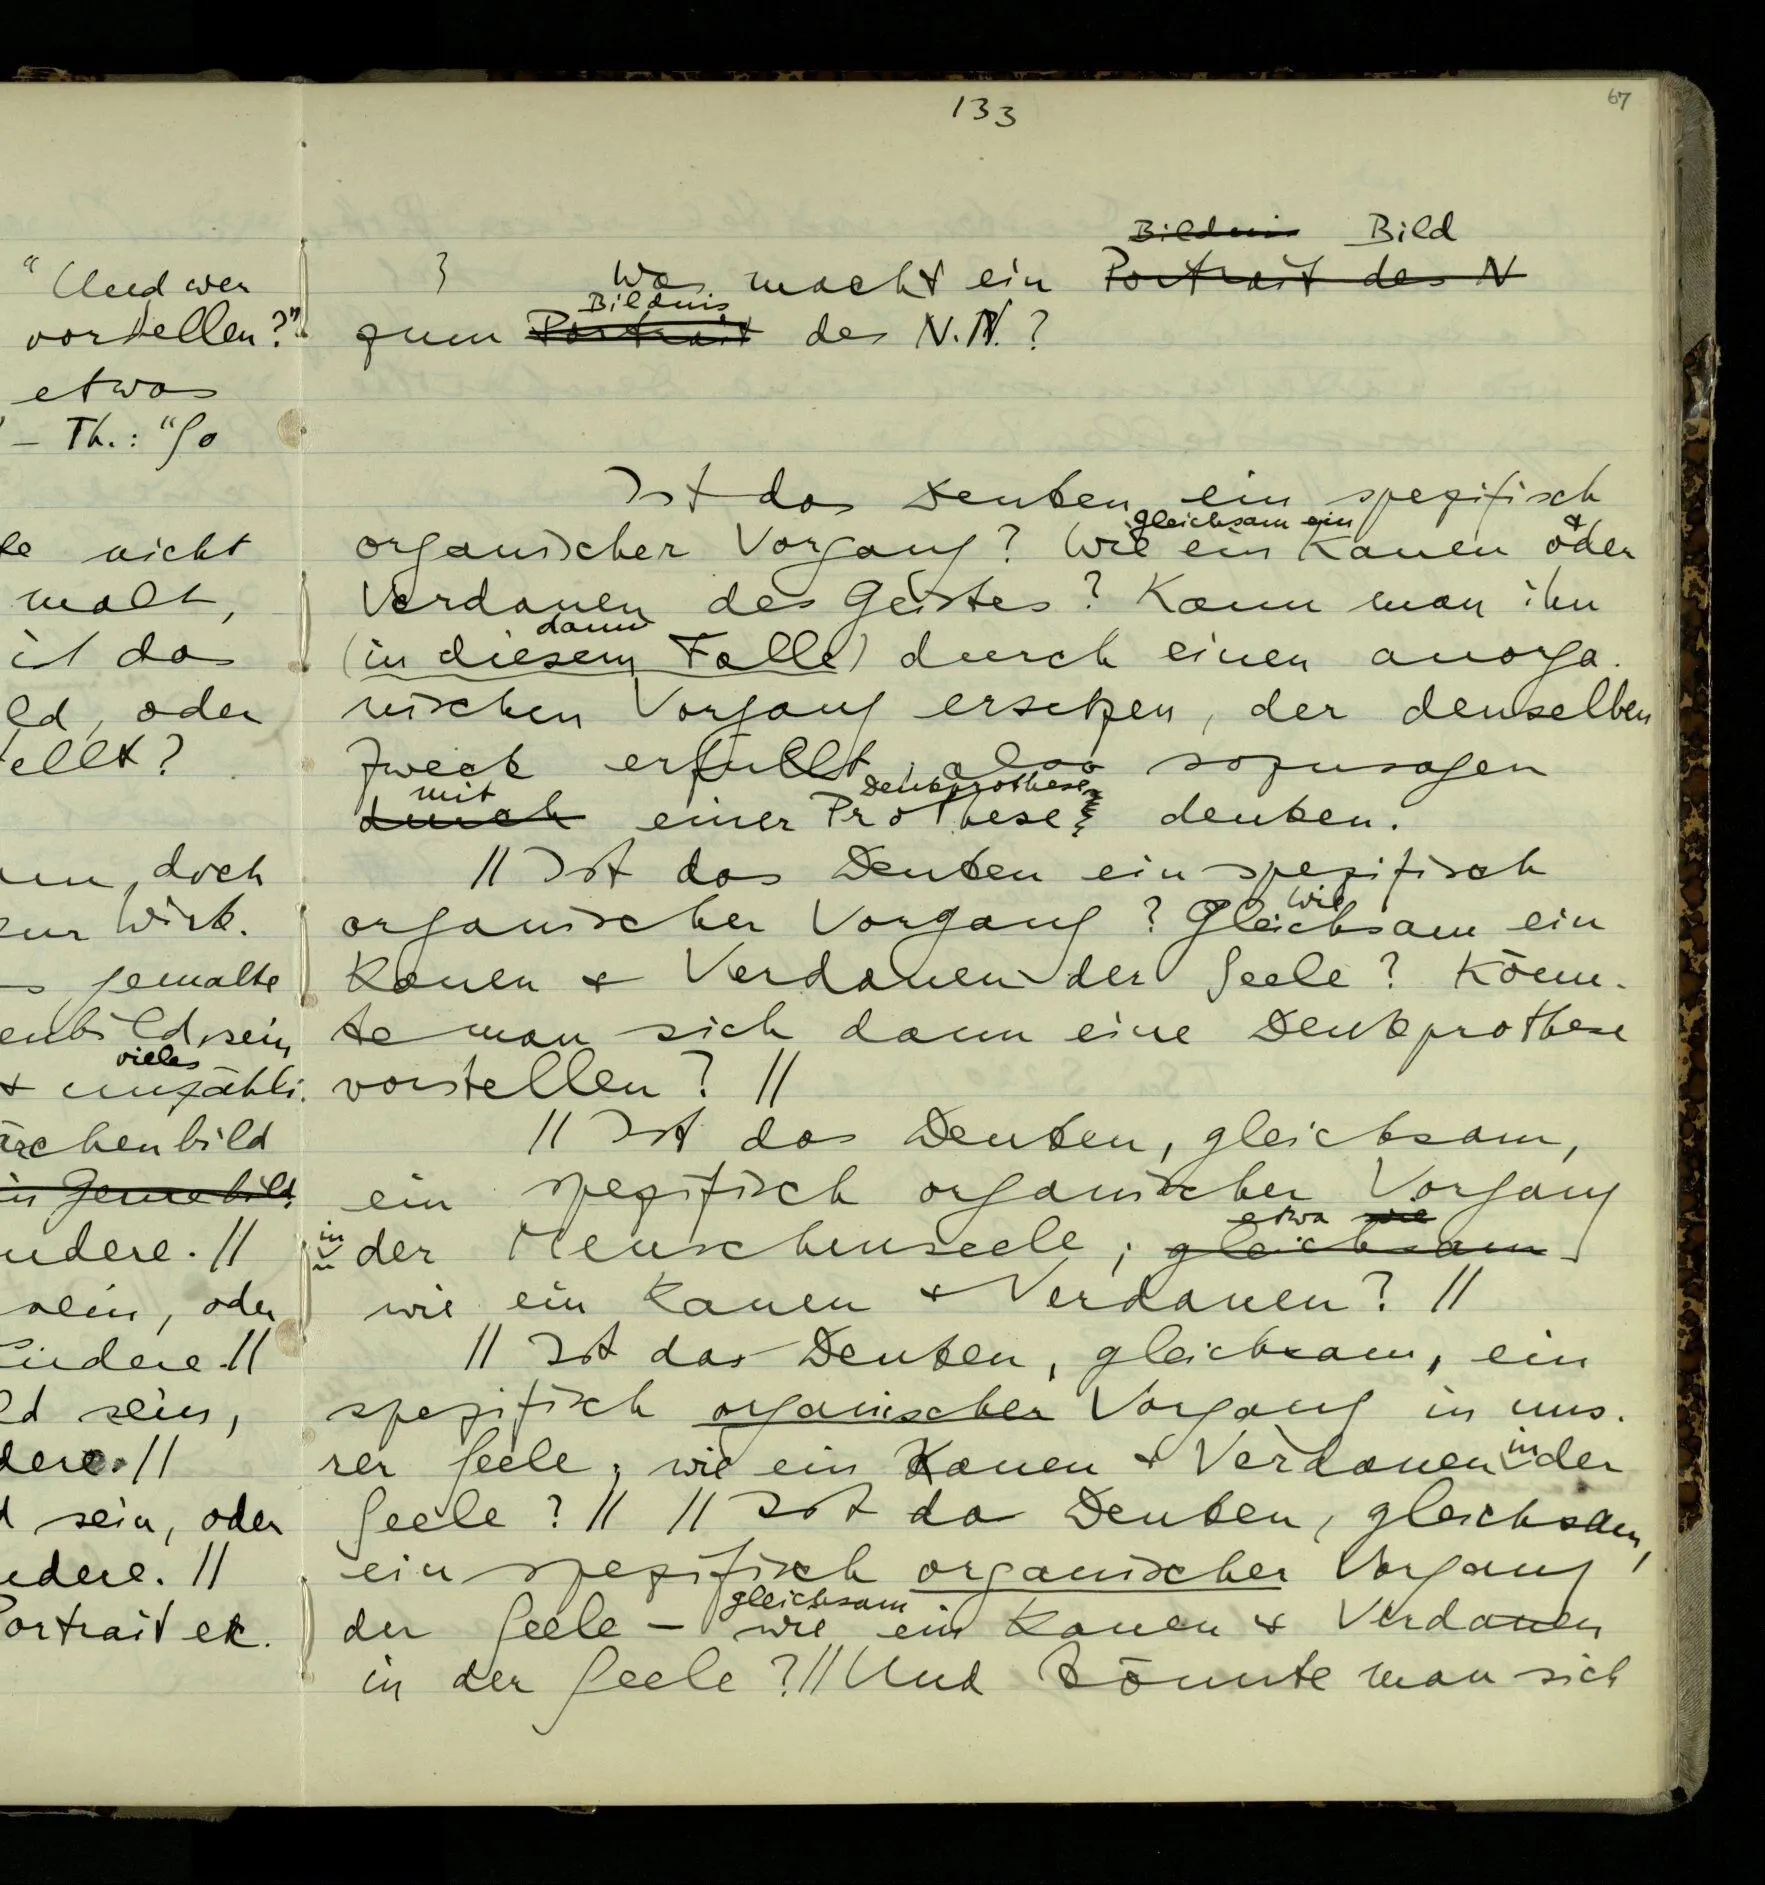 133
67
"Und wer
vorstellen?"
etwas
" – Th.: "So
nicht
malt,
ist das
ld, oder
tellt?
doch
zur Wirk-
gemalte
enbild, sein
vieles
& unzähli-
ärchenbild
in Genrebild
ndere. //
sein, oder
//
ld sein,
dere. //
d sein, oder
ndere. //
Portrait etc.
Bildnis Bild
Was macht ein Portrait des N
Bildnis
zum Portrait des N.N.?
Ist das Denken ein spezifisch
gleichsam ein &
organischer Vorgang? Wie ein Kauen oder
Verdauen des Geistes? Kann man ihn
dann
(in diesem Falle) durch einen anorga-
nischen Vorgang ersetzen, der denselben
Zweck erfüllt, also sozusagen
mit Denkprothese
durch einer Prothese denken.
// Ist das Denken ein spezifisch
wie
organischer Vorgang? Gleichsam ein
Kauen & Verdauen der Seele? Könn-
te man sich dann eine Denkprothese
vorstellen? //
// Ist das Denken, gleichsam,
ein spezifisch organischer Vorgang
in etwa wie
der Menschenseele; gleichsam
wie ein Kauen & Verdauen? //
// Ist das Denken, gleichsam, ein
spezifisch organischer Vorgang in uns-
in
rer Seele; wie ein Kauen & Verdauen der
Seele? // // Ist da Denken, gleichsam,
ein spezifisch organischer Vorgang
gleichsam
der Seele – wie ein Kauen & Verdauen
in der Seele? // Und könnte man sich